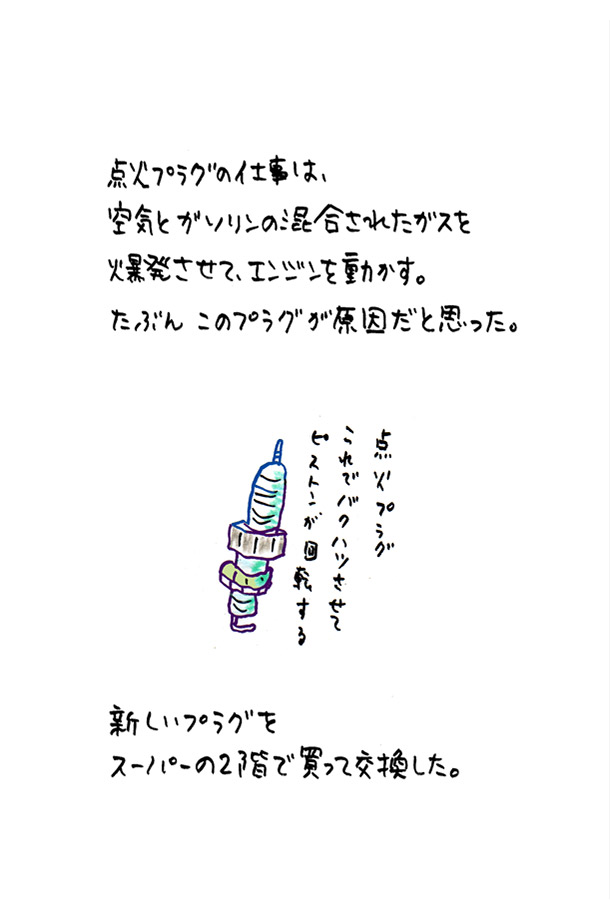 点火プラグの仕事は、
空気とガソリンの混合されたガスを
爆発させて、エンジンを動かす。
たぶん このプラグが原因だと思った。
点火プラグ
これでバクハツさせて
ピストンが回転する
新しいプラグを
スーパーの2階で買って交換した。